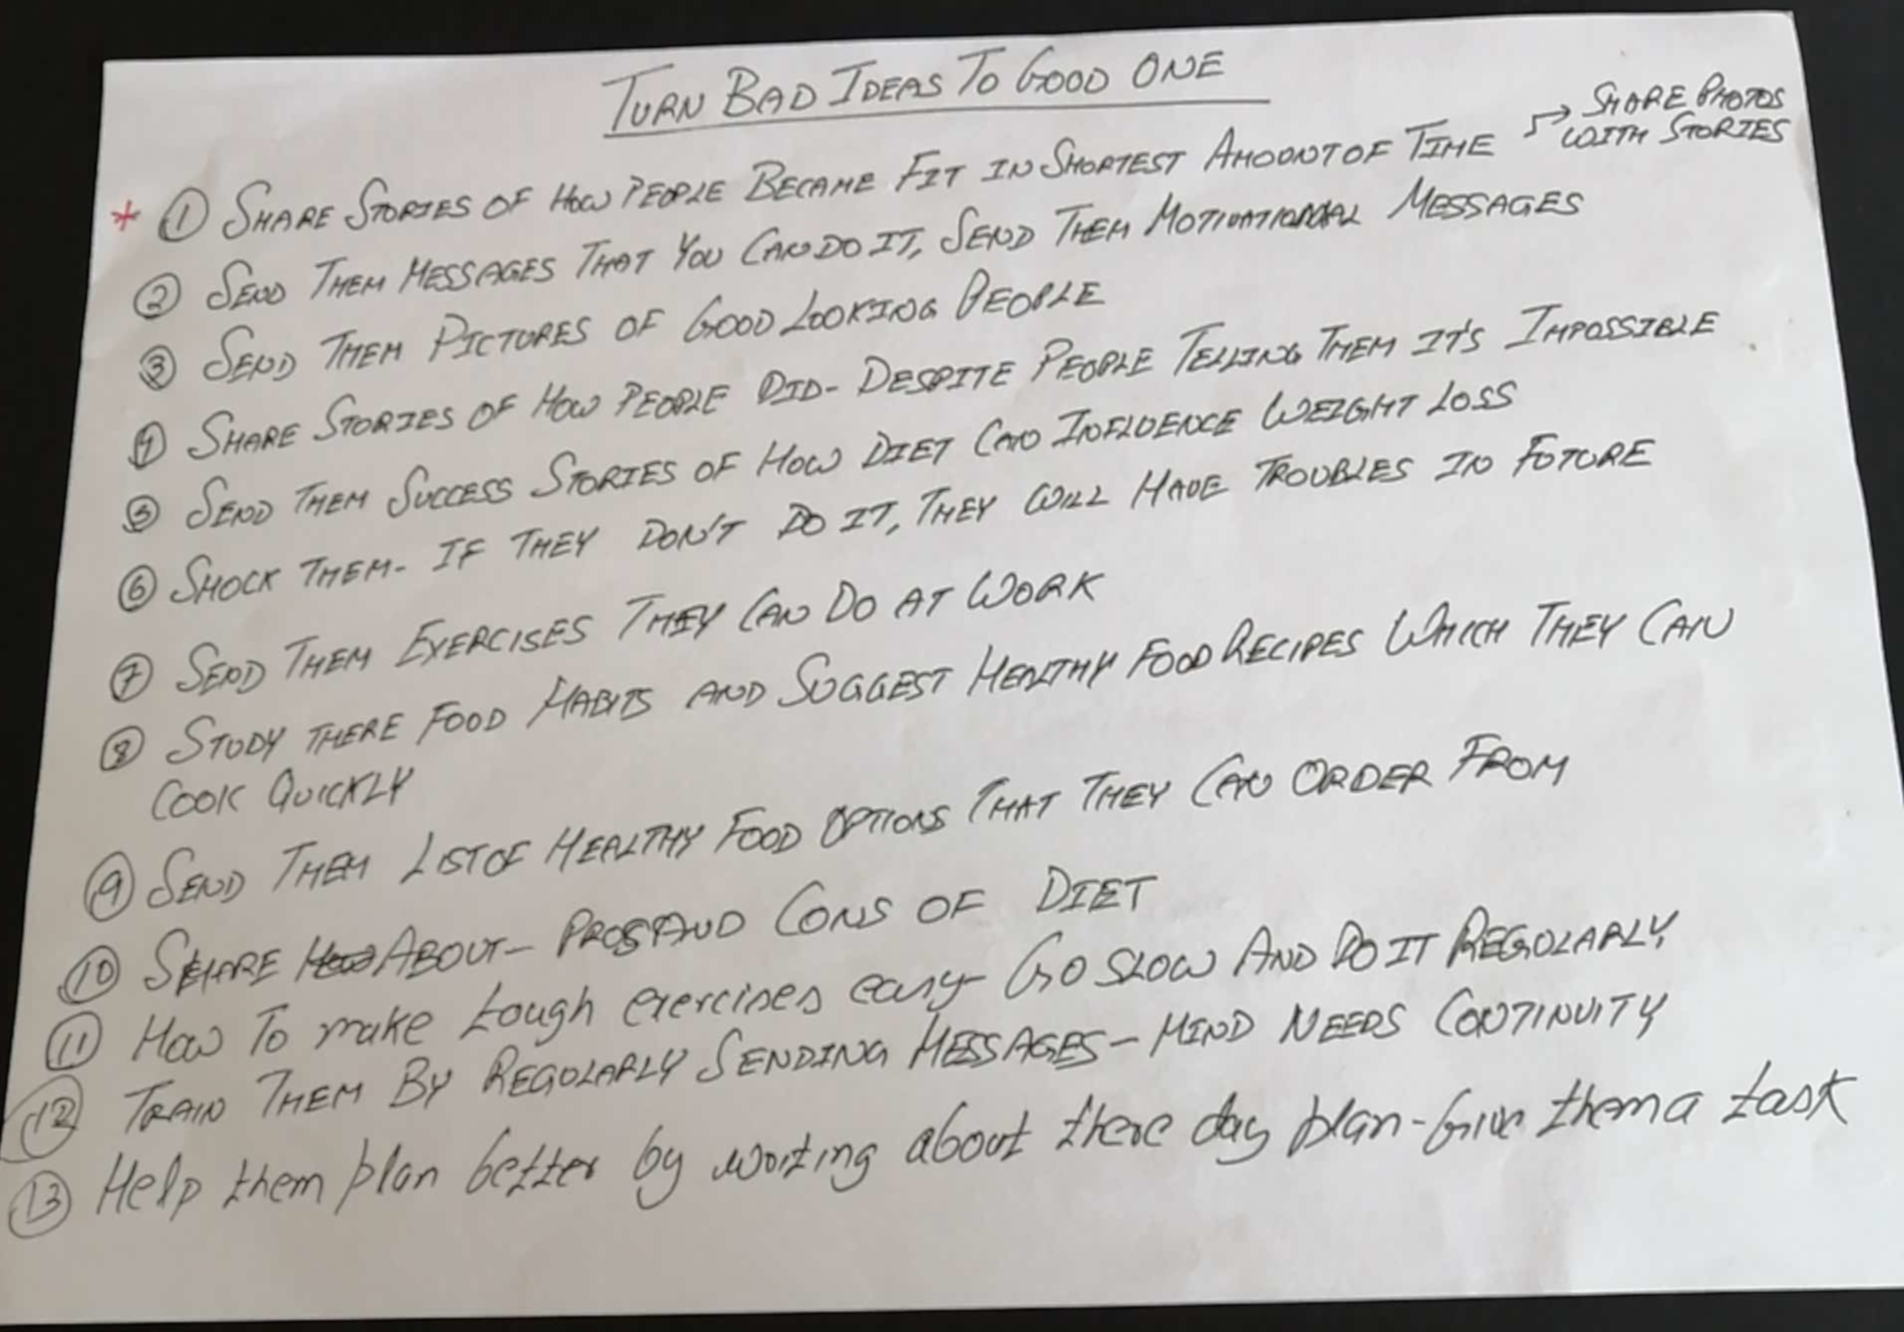 TURN BAD IDEAS TO GOOD ONE
* ① SHARE STORIES OF HOW PEOPLE BECAME FIT IN SHORTEST AMOUNT OF TIME → SHARE PHOTOS
WITH STORIES
② SEND THEM MESSAGES THAT YOU CAN DO IT, SEND THEM MOTIVATIONAL MESSAGES
③ SEND THEM PICTURES OF GOOD LOOKING PEOPLE
④ SHARE STORIES OF HOW PEOPLE DID- DESPITE PEOPLE TELLING THEM IT'S IMPOSSIBLE
⑤ SEND THEM SUCCESS STORIES OF HOW DIET CAN INFLUENCE WEIGHT LOSS
⑥ SHOCK THEM- IF THEY DON'T DO IT, THEY WILL HAVE TROUBLES IN FUTURE
⑦ SEND THEM EXERCISES THEY CAN DO AT WORK
⑧ STUDY THERE FOOD HABITS AND SUGGEST HEALTHY FOOD RECIPES WHICH THEY CAN
COOK QUICKLY
⑨ SEND THEM LIST OF HEALTHY FOOD OPTIONS THAT THEY CAN ORDER FROM
⑩ SHARE HOW ABOUT- PROS AND CONS OF DIET
⑪ HOW To make tough exercises easy- GO SLOW AND DO IT REGULARLY
⑫ TRAIN THEM BY REGULARLY SENDING MESSAGES- MIND NEEDS CONTINUITY
⑬ Help them plan better by writing about there day plan- Give them a task